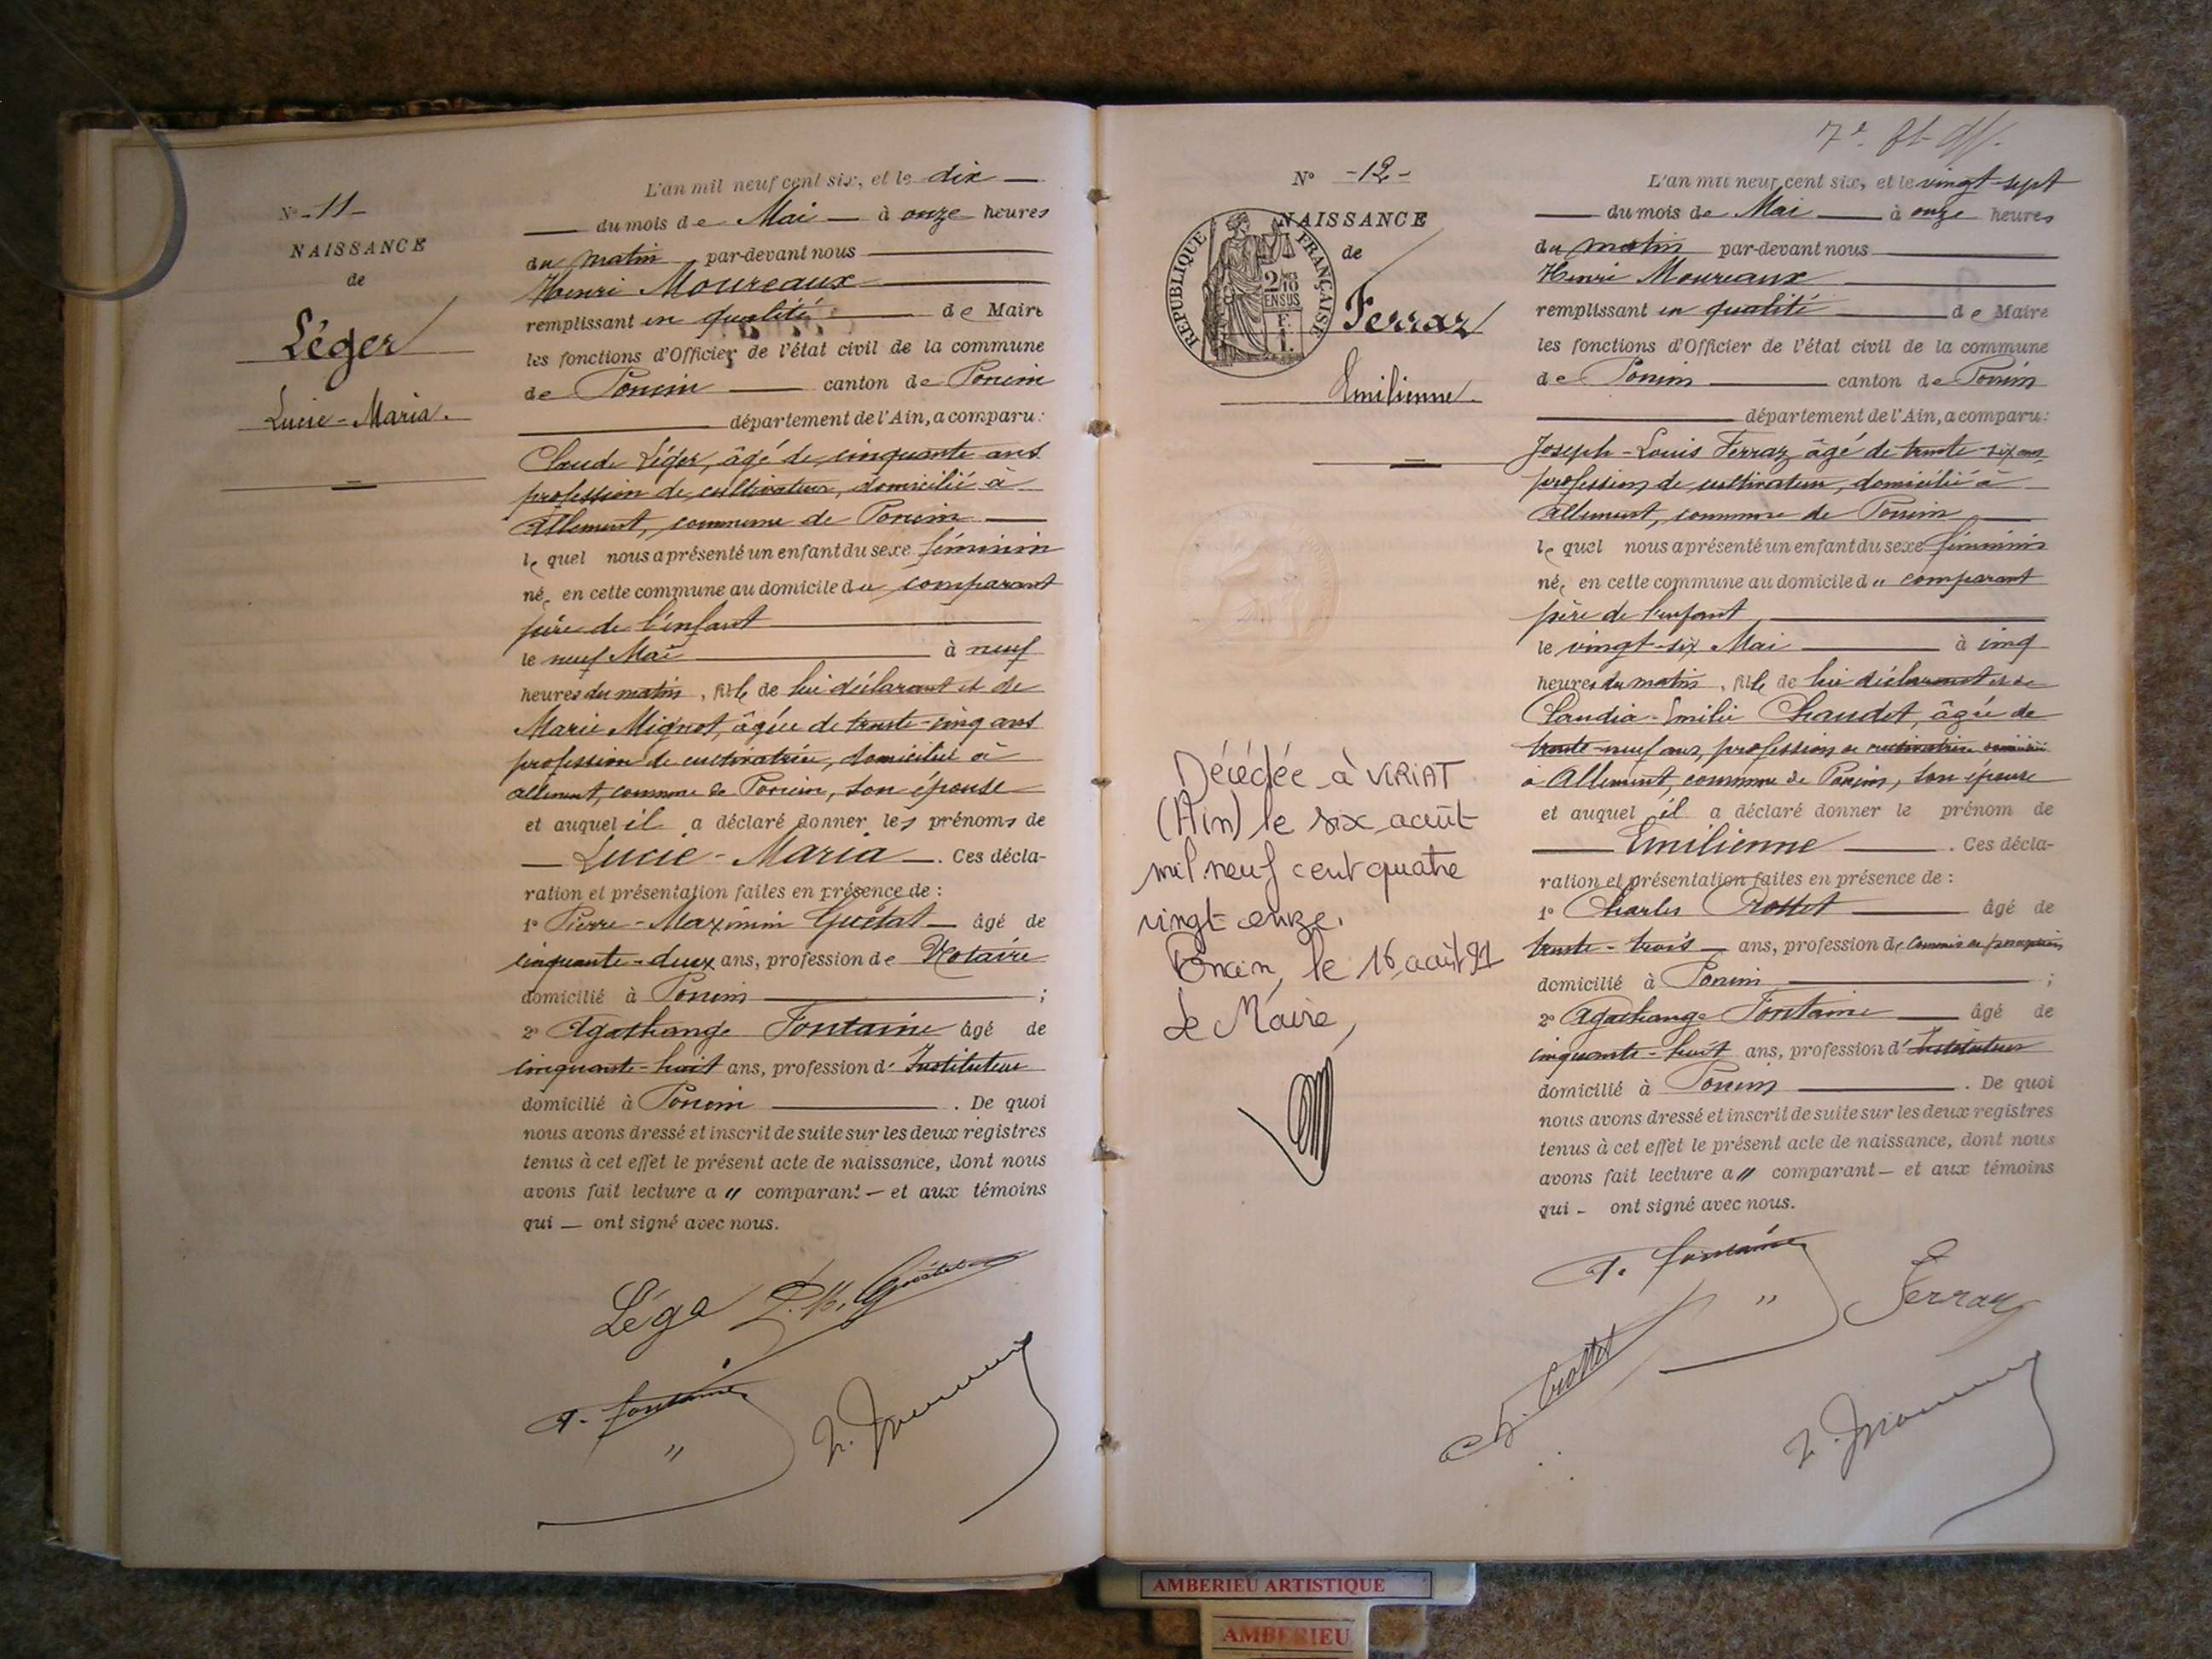 N° -11-
NAISSANCE
de
Léger
Lucie-Maria.
L'an mil neuf cent six, et le dix
du mois de Mai à onze heures
du matin par-devant nous
Henri Moureaux
remplissant en qualité de Maire
les fonctions d'Officier de l'état civil de la commune
de Poncin canton de Poncin
département de l'Ain, a comparu:
Claude Léger, âgé de cinquante ans
profession de cultivateur, domicilié à
Allement, commune de Poncin
lequel nous a présenté un enfant du sexe féminin
née en cette commune au domicile du comparant
père de l'enfant
le neuf Mai à neuf
heures du matin, fille de lui déclarant et de
Marie Mignot, âgée de trente-cinq ans
profession de cultivatrice, domiciliée à
Allement, commune de Poncin, son épouse
et auquel il a déclaré donner les prénoms de
Lucie-Maria. Ces décla-
ration et présentation faites en présence de:
1° Pierre-Maximin Guétat âgé de
cinquante-deux ans, profession de Notaire
domicilié à Poncin ;
2° Agathange Fontaine âgé de
cinquante-huit ans, profession d'Instituteur
domicilié à Poncin. De quoi
nous avons dressé et inscrit de suite sur les deux registres
tenus à cet effet le présent acte de naissance, dont nous
avons fait lecture a" comparant — et aux témoins
qui — ont signé avec nous.
Léger P.M. Guétat
A. Fontaine
"
N° -12-
NAISSANCE
de
RÉPUBLIQUE FRANÇAISE
2/10
EN SUS
Ferraz
Emilienne.
Décédée à VIRIAT
(Ain) le six août
mil neuf cent quatre
vingt onze.
Poncin, le 16 août 91
Le Maire,
L'an mil neuf cent six, et le vingt-sept
du mois de Mai à onze heures
du matin par-devant nous
Henri Moureaux
remplissant en qualité de Maire
les fonctions d'Officier de l'état civil de la commune
de Poncin canton de Poncin
département de l'Ain, a comparu:
Joseph-Louis Ferraz âgé de trente-six ans
profession de cultivateur, domicilié à
Allement, commune de Poncin
lequel nous a présenté un enfant du sexe féminin
née en cette commune au domicile du comparant
père de l'enfant
le vingt-six Mai à cinq
heures du matin, fille de lui déclarant et de
Claudia-Emilie Chaudet, âgée de
trente-neuf ans, profession de cultivatrice domiciliée
à Allement, commune de Poncin, son épouse
et auquel il a déclaré donner le prénom de
Emilienne. Ces décla-
ration et présentation faites en présence de:
1° Charles Crottet âgé de
trente-trois ans, profession de
domicilié à Poncin ;
2° Agathange Fontaine âgé de
cinquante-huit ans, profession d'Instituteur
domicilié à Poncin. De quoi
nous avons dressé et inscrit de suite sur les deux registres
tenus à cet effet le présent acte de naissance, dont nous
avons fait lecture a" comparant — et aux témoins
qui - ont signé avec nous.
A. Fontaine
" Ferraz
Ch. Crottet
AMBERIEU ARTISTIQUE
AMBERIEU